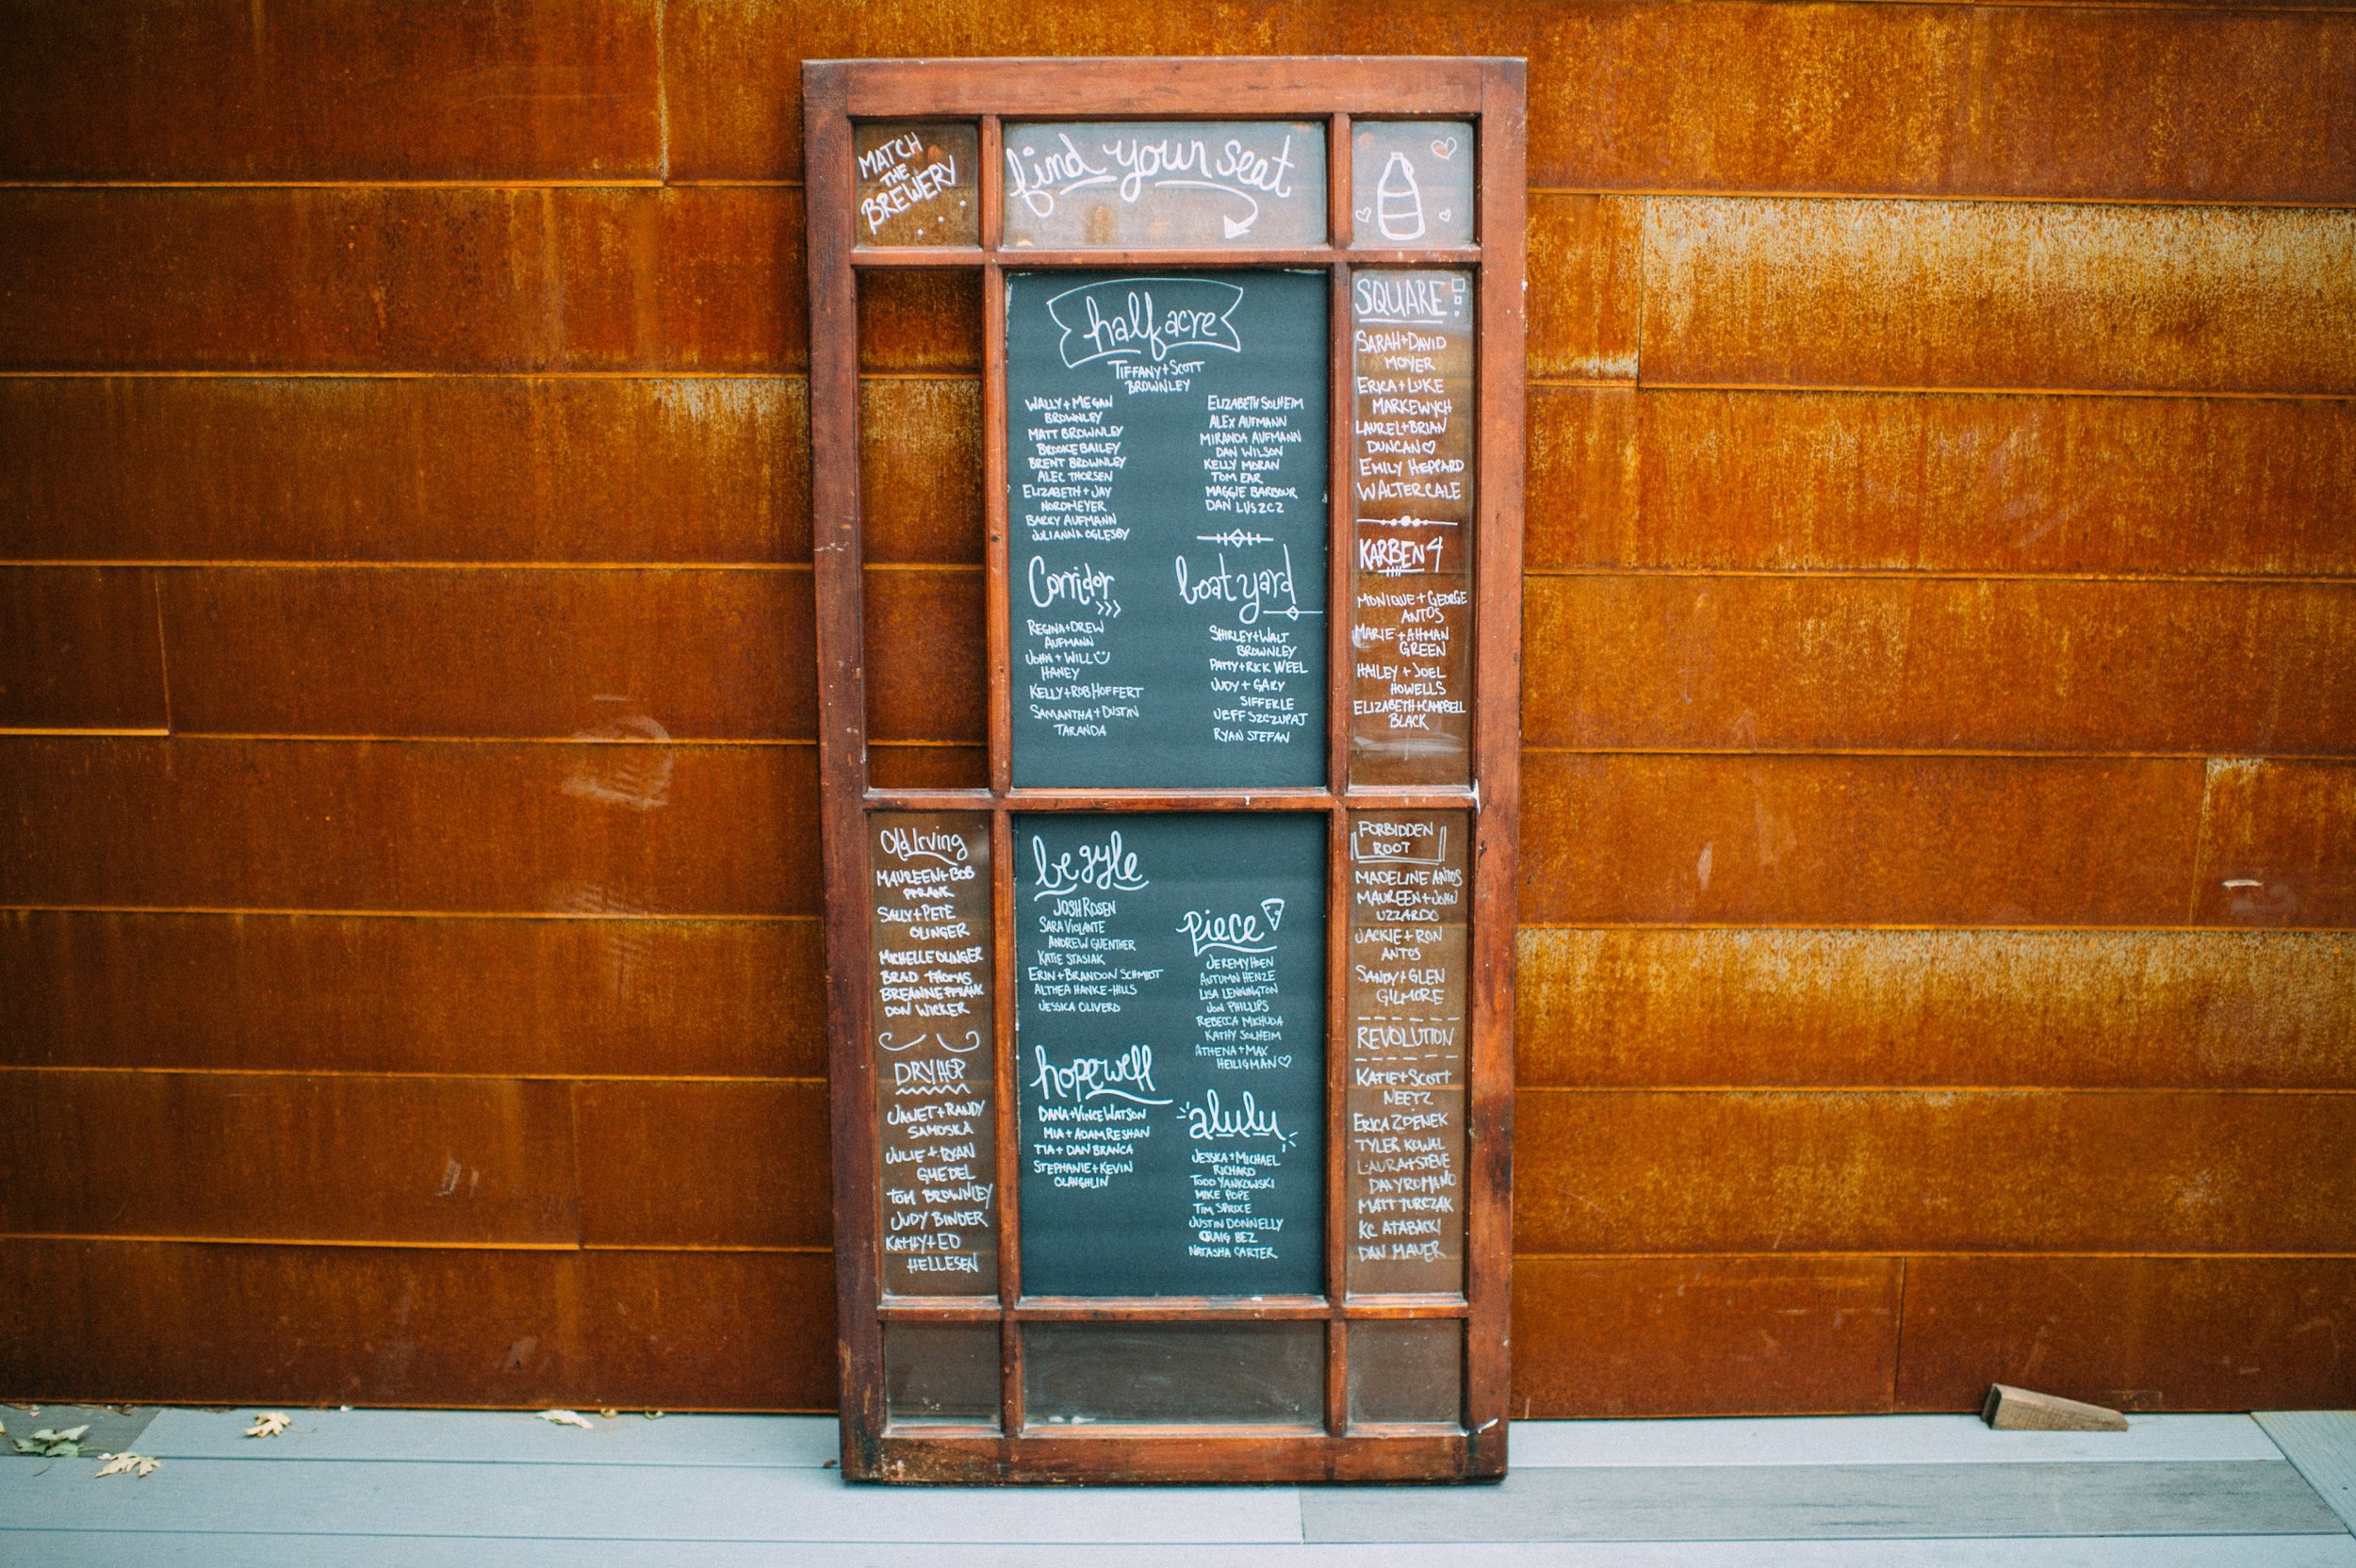 MATCH
THE
BREWERY...
find your seat
half acre
TIFFANY + SCOTT
BROWNLEY
WALLY + MEGAN
BROWNLEY
MATT BROWNLEY
BROOKE BAILEY
BRENT BROWNLEY
ALEC THORSEN
ELIZABETH + JAY
NORDMEYER
BARRY AUFMANN
JULIANNA OGLESBY
ELIZABETH SOLHEIM
ALEX AUFMANN
MIRANDA AUFMANN
DAN WILSON
KELLY MORAN
TOM EAR
MAGGIE BARBOUR
DAN LUSZCZ
Corridor
REGINA + DREW
AUFMANN
JOHN + WILL
HANEY
KELLY + ROB HOFFERT
SAMANTHA + DUSTIN
TARANDA
boat yard
SHIRLEY + WALT
BROWNLEY
PATTY + RICK WEEL
JUDY + GARY
SIFFERLE
JEFF SZCZUPAJ
RYAN STEFAN
SQUARE
SARAH + DAVID
MOYER
ERICA + LUKE
MARKEWYCH
LAUREL + BRIAN
DUNCAN♡
EMILY HEPPARD
WALTER CALE
KARBEN 4
MONIQUE + GEORGE
ANTOS
MARIE + AHMAN
GREEN
HAILEY + JOEL
HOWELLS
ELIZABETH + CAMPBELL
BLACK
Old Irving
MAUREEN + BOB
PFRANK
SALLY + PETE
OLINGER
MICHELLE OLINGER
BRAD THOMAS
BREANNE PFRANK
DON WICKER
DRYHOP
JANET + RANDY
SAMOSKA
JULIE + RYAN
GMEDEL
TOM BROWNLEY
JUDY BINDER
KATHY + ED
HELLESEN
begyle
JOSH ROSEN
SARA VIOLANTE
ANDREW GUENTHER
KATIE STASIAK
ERIN + BRANDON SCHMIDT
ALTHEA HANKE-HILLS
JESSICA OLIVERO
hopewell
DANA + VINCE WATSON
MIA + ADAM RESHAN
TIA + DAN BRANCA
STEPHANIE + KEVIN
OLAUGHLIN
piece
JEREMY HOEN
AUTUMN HENZE
LISA LENNINGTON
JON PHILLIPS
REBECCA MICHUDA
KATHY SOLHEIM
ATHENA + MAX
HEILIGMAN♡
alulu
JESSICA + MICHAEL
RICHARD
TODD YANKOWSKI
MIKE POPE
TIM SPRUCE
JUSTIN DONNELLY
CRAIG BEZ
NATASHA CARTER
FORBIDDEN
ROOT
MADELINE ANTOS
MAUREEN + JOHN
UZZARDO
JACKIE + RON
ANTOS
SANDY + GLEN
GILMORE
REVOLUTION
KATIE + SCOTT
NEETZ
ERICA ZDENEK
TYLER KOWAL
LAURA + STEVE
DAYROMANO
MATT TURCZAK
KC ATABACKI
DAN MAUER